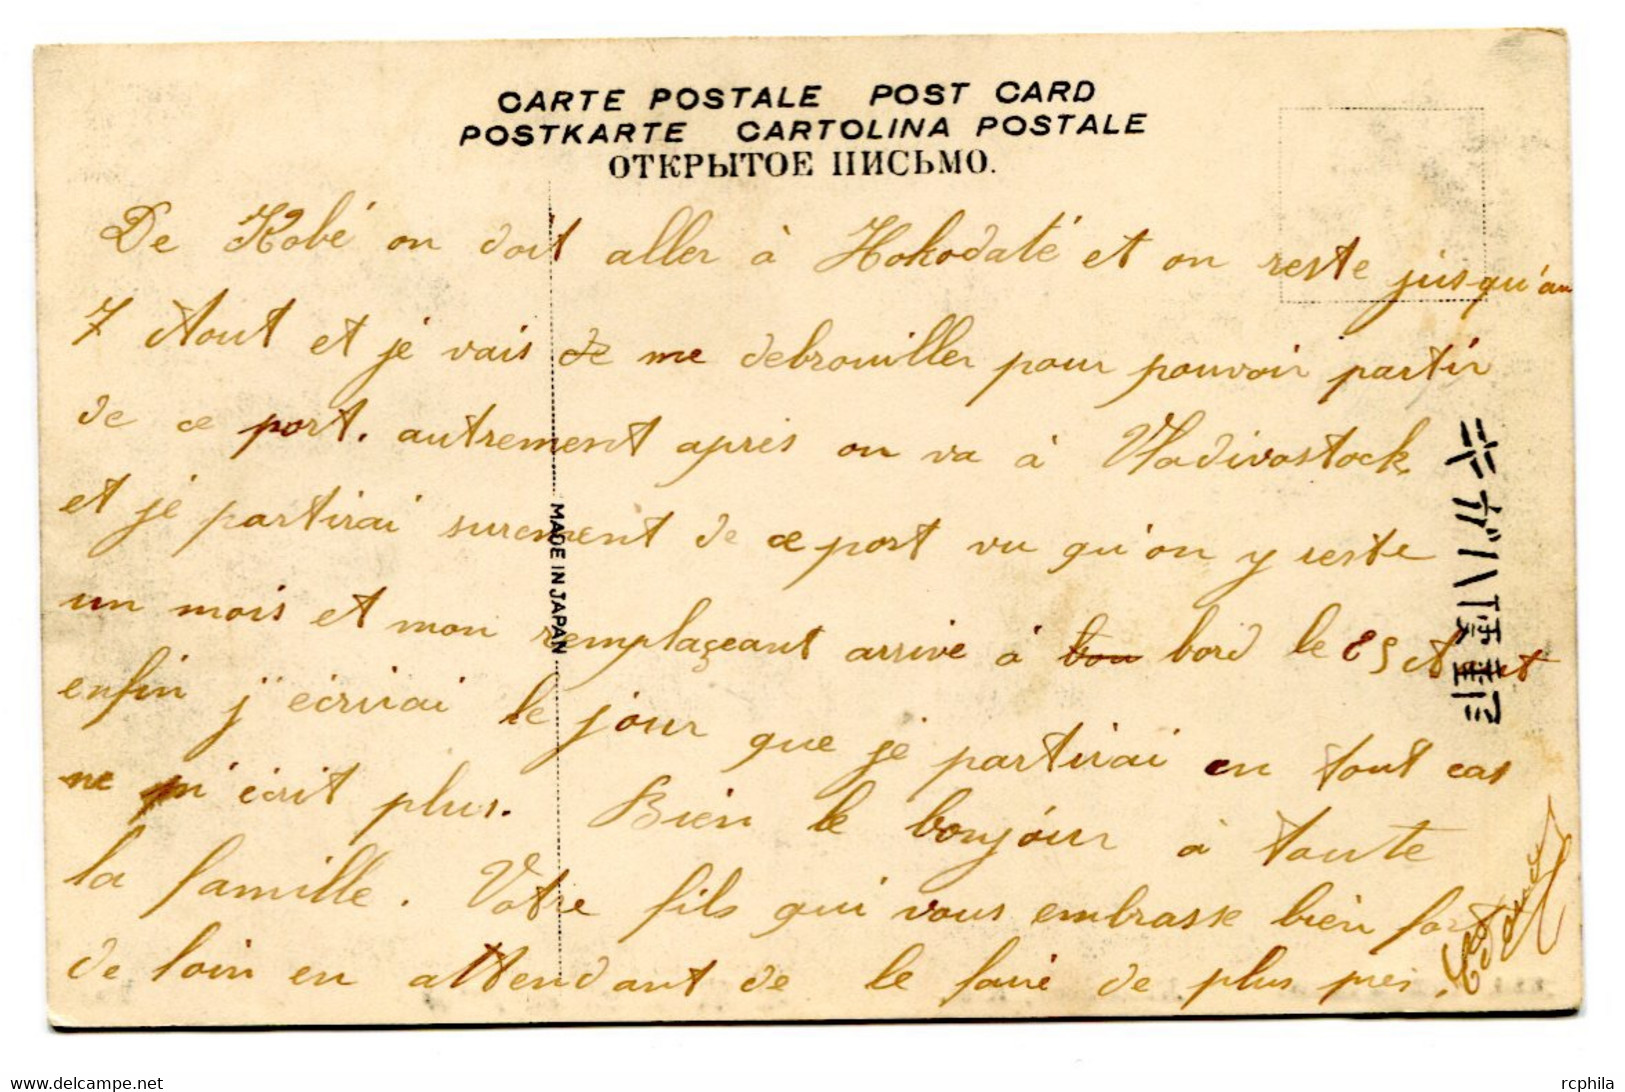 CARTE POSTALE POST CARD
POSTKARTE CARTOLINA POSTALE
ОТКРЫТОЕ ПИСЬМО.
De Kobé on doit aller à Hokodaté et on reste jusqu'au
7 Aout et je vais de me debrouiller pour pouvoir partir
de ce port. autrement après on va à Vladivostock
et je partirai surement de ce port vu qu'on y reste
un mois et mon remplaçeant arrive à bon bord le 25 Aout
enfin j'écrirai le jour que je partirai en tout cas
ne m'écrit plus. Bien le bonjour à toute
la famille. Votre fils qui vous embrasse bien fort
de loin en attendant de le faire de plus près.
MADE IN JAPAN
きがハ便郵
delcampe.net
rcphila